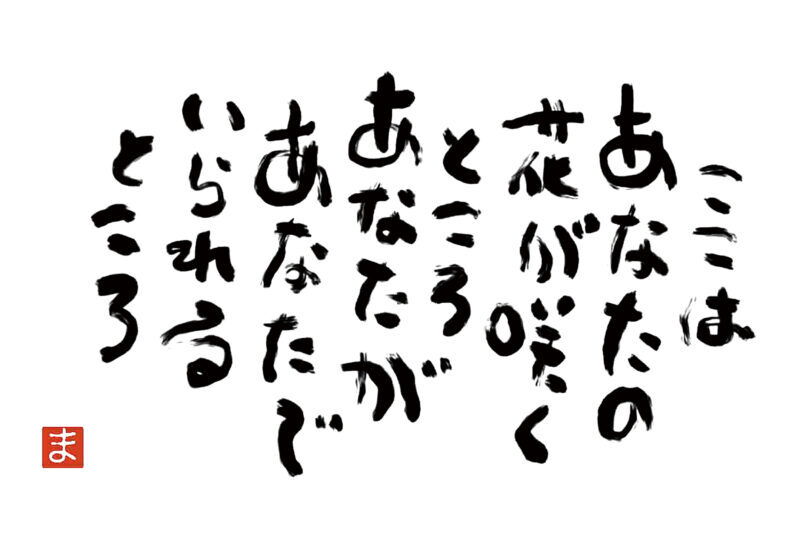 ここは
あなたの
花が咲く
ところ
あなたが
あなたで
いられる
ところ
ま